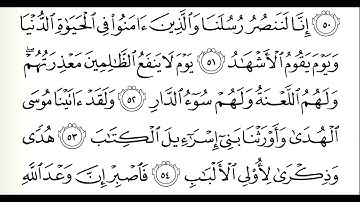 ٥٠ إِنَّا لَنَنصُرُ رُسُلَنَا وَٱلَّذِينَ ءَامَنُوا۟ فِى ٱلْحَيَوٰةِ ٱلدُّنْيَا
وَيَوْمَ يَقُومُ ٱلْأَشْهَٰدُ ٥١ يَوْمَ لَا يَنفَعُ ٱلظَّٰلِمِينَ مَعْذِرَتُهُمْ ۖ
وَلَهُمُ ٱللَّعْنَةُ وَلَهُمْ سُوٓءُ ٱلدَّارِ ٥٢ وَلَقَدْ ءَاتَيْنَا مُوسَى
ٱلْهُدَىٰ وَأَوْرَثْنَا بَنِىٓ إِسْرَٰٓءِيلَ ٱلْكِتَٰبَ ٥٣ هُدًى
وَذِكْرَىٰ لِأُو۟لِى ٱلْأَلْبَٰبِ ٥٤ فَٱصْبِرْ إِنَّ وَعْدَ ٱللَّهِ